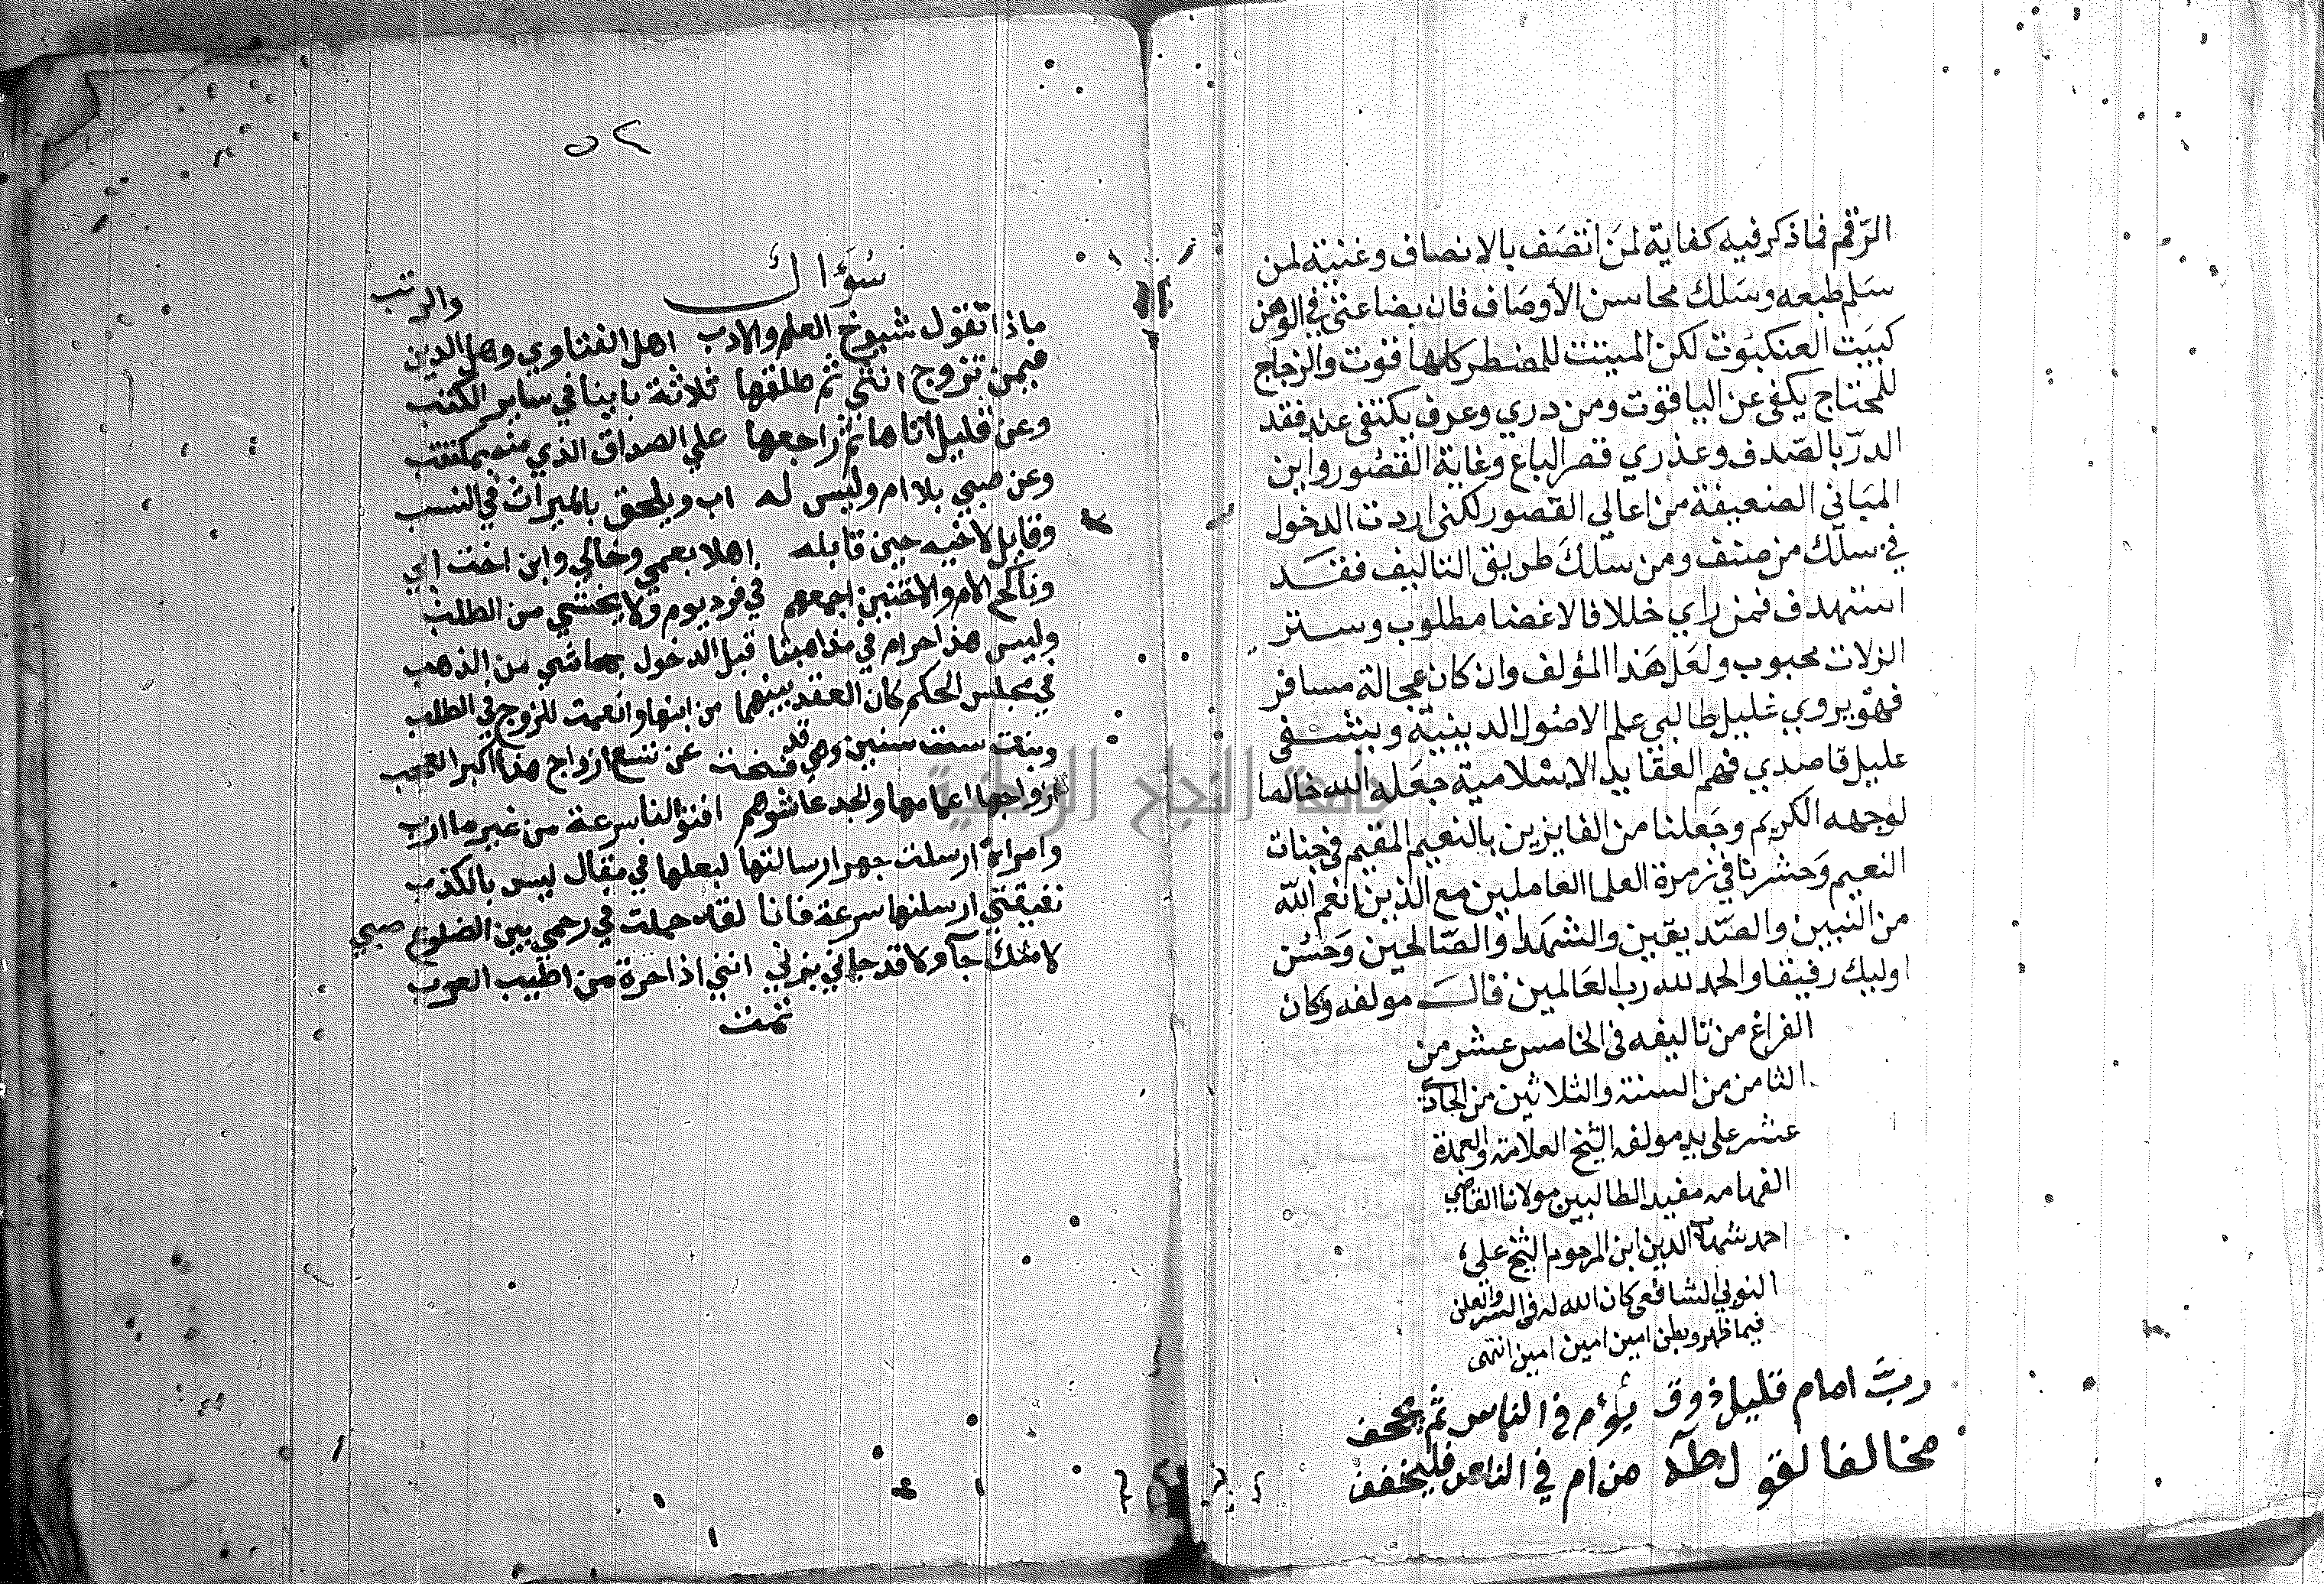 الرّقم فما ذكر فيه كفاية لمن اتصَف بالانصاف وغنية لمن
سَلم طبعه وسَلك محاسن الأوصَاف فان بضاعتي في الوهن
كبيَت العنكبوت لكن الميتة للمضطر كلها قوت والزجاج
للمحتاج يكفي عن الياقوت ومن دري وعرف يكتفي عند فقد
الدرّ بالصّدف وعذري قصر الباع وغاية القصُور واين
المبَاني الضعيفة من اعالي القصور لكني اردت الدخول
في سلك من صنف ومن سلك طريق التاليف فقد
استهدف فمن راي خللا فالاغضا مطلوب وستر
الزلات محبوب ولعَل هَذا المؤلف وان كان عجالة مسافر
فهوّ يروي غليل طالبي علم الاصُول الدينية ويشفي
عليل قاصدي فهم العقايد الاسْلامية جعَله الله خالصا
لوجهه الكريم وجَعلنا من الفايزين بالنعيم المقيم في جنات
النعيم وَحشرنا في زمرة العلما العاملين مع الذين انعم الله
من النبيين والصّديقين والشهَدا والصّالحين وَحسُن
اوليك رفيقا والحمد لله رب العَالمين قال مولفه وكان
الفراغ من تاليفه في الخامس عشر من
الثامن من الستة والثلاثين من الحادي
عشر على يد مولفه الشيخ العلامة والعمدة
الفهامه مفيد الطالبين مولانا القاضي
احمد شهاب الدين ابن المرحوم الشيخ علي
النوبي الشافعي كان الله له في السر والعلن
فيما ظهر وبطن امين امين امين انتهى
ربّ امام قليل ذوق يؤم في الناس ثم يجحف
مخالفا لقول طه من ام في الناس فليخفف
٥٢
سُؤال
ماذا تقول شيوخ العلم والادب اهل الفتاوي وهل الدين والرتب
فيمن تزوج انثي ثم طلقها ثلاثة باينا في ساير الكتب
وعن قليل اتاها ثم راجعها علي الصداق الذي منه بمكتتب
وعن صبي بلا ام وليس له اب ويلحق بالميراث في النسب
وقابل لاخيه حين قابله اهلا بعمي وخالي وابن اخت ابي
وناكح الام والاختين اجمعهم في فرد يوم ولا يخشي من الطلب
وليس هذا حرام في مذاهبنا قبل الدخول بها شي من الذهب
في مجلس الحكم كان العقد بينهما من ابنها وانعمت للزوج في الطلب
وبنت ست سنين وهي قد فسخت عن تسع ازواج هذا اكبر العجب
ازواجها اعمامها والجد عاشوهم افتوا لنا سرعة من غير ما ارب
وامراة ارسلت جهرا رسالتها لبعلها في مقال ليس بالكذب
نفيقتي ارسلنها سرعة فانا لقد حملت في رحمي بين الضلوع صبي
لا منك جآ ولا قد جاني بزني انني اذا حرة من اطيب العرب
تمت